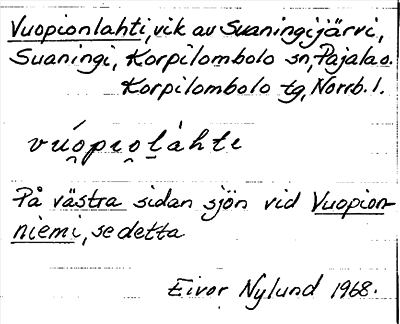 Vuopionlahti, vik av Suaningijärvi,
Suaningi, Korpilombolo sn, Pajala o.
Korpilombolo tg, Norrb. l.
vúo̯pio̯l̠áhti
På västra sidan sjön vid Vuopion-
niemi, se detta
Eivor Nylund 1968.